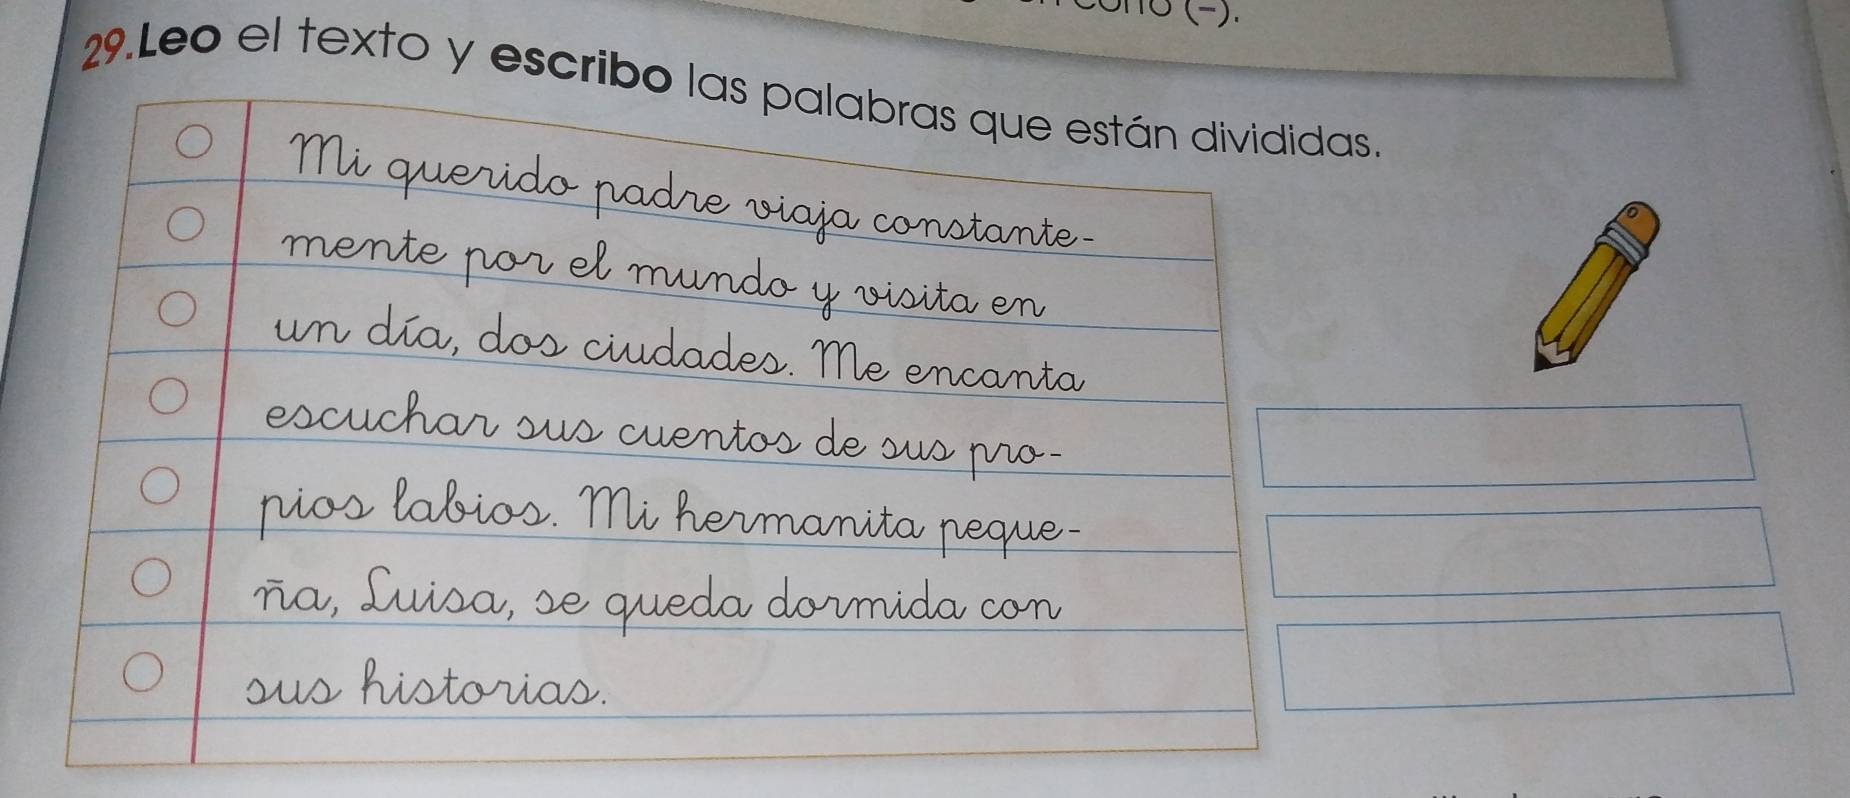 (-).
29. Leo el texto y escribo las palabras que están divididas.
Mi querido padre viaja constante-
mente por el mundo y visita en
un día, dos ciudades. Me encanta
escuchar sus cuentos de sus pro-
pios labios. Mi hermanita peque-
ña, Luisa, se queda dormida con
sus historias.